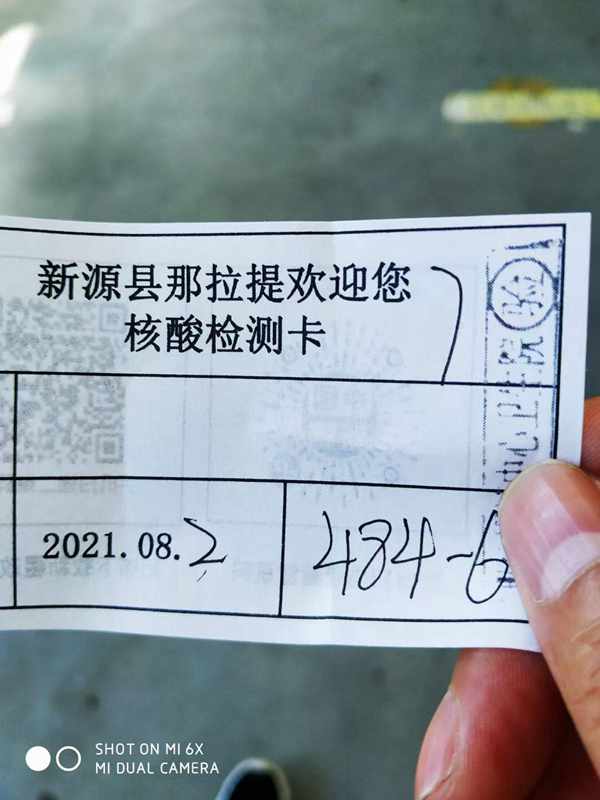 新源县那拉提欢迎您
核酸检测卡
中心卫生院
验
2021.08.2
484-6
SHOT ON MI 6X
MI DUAL CAMERA